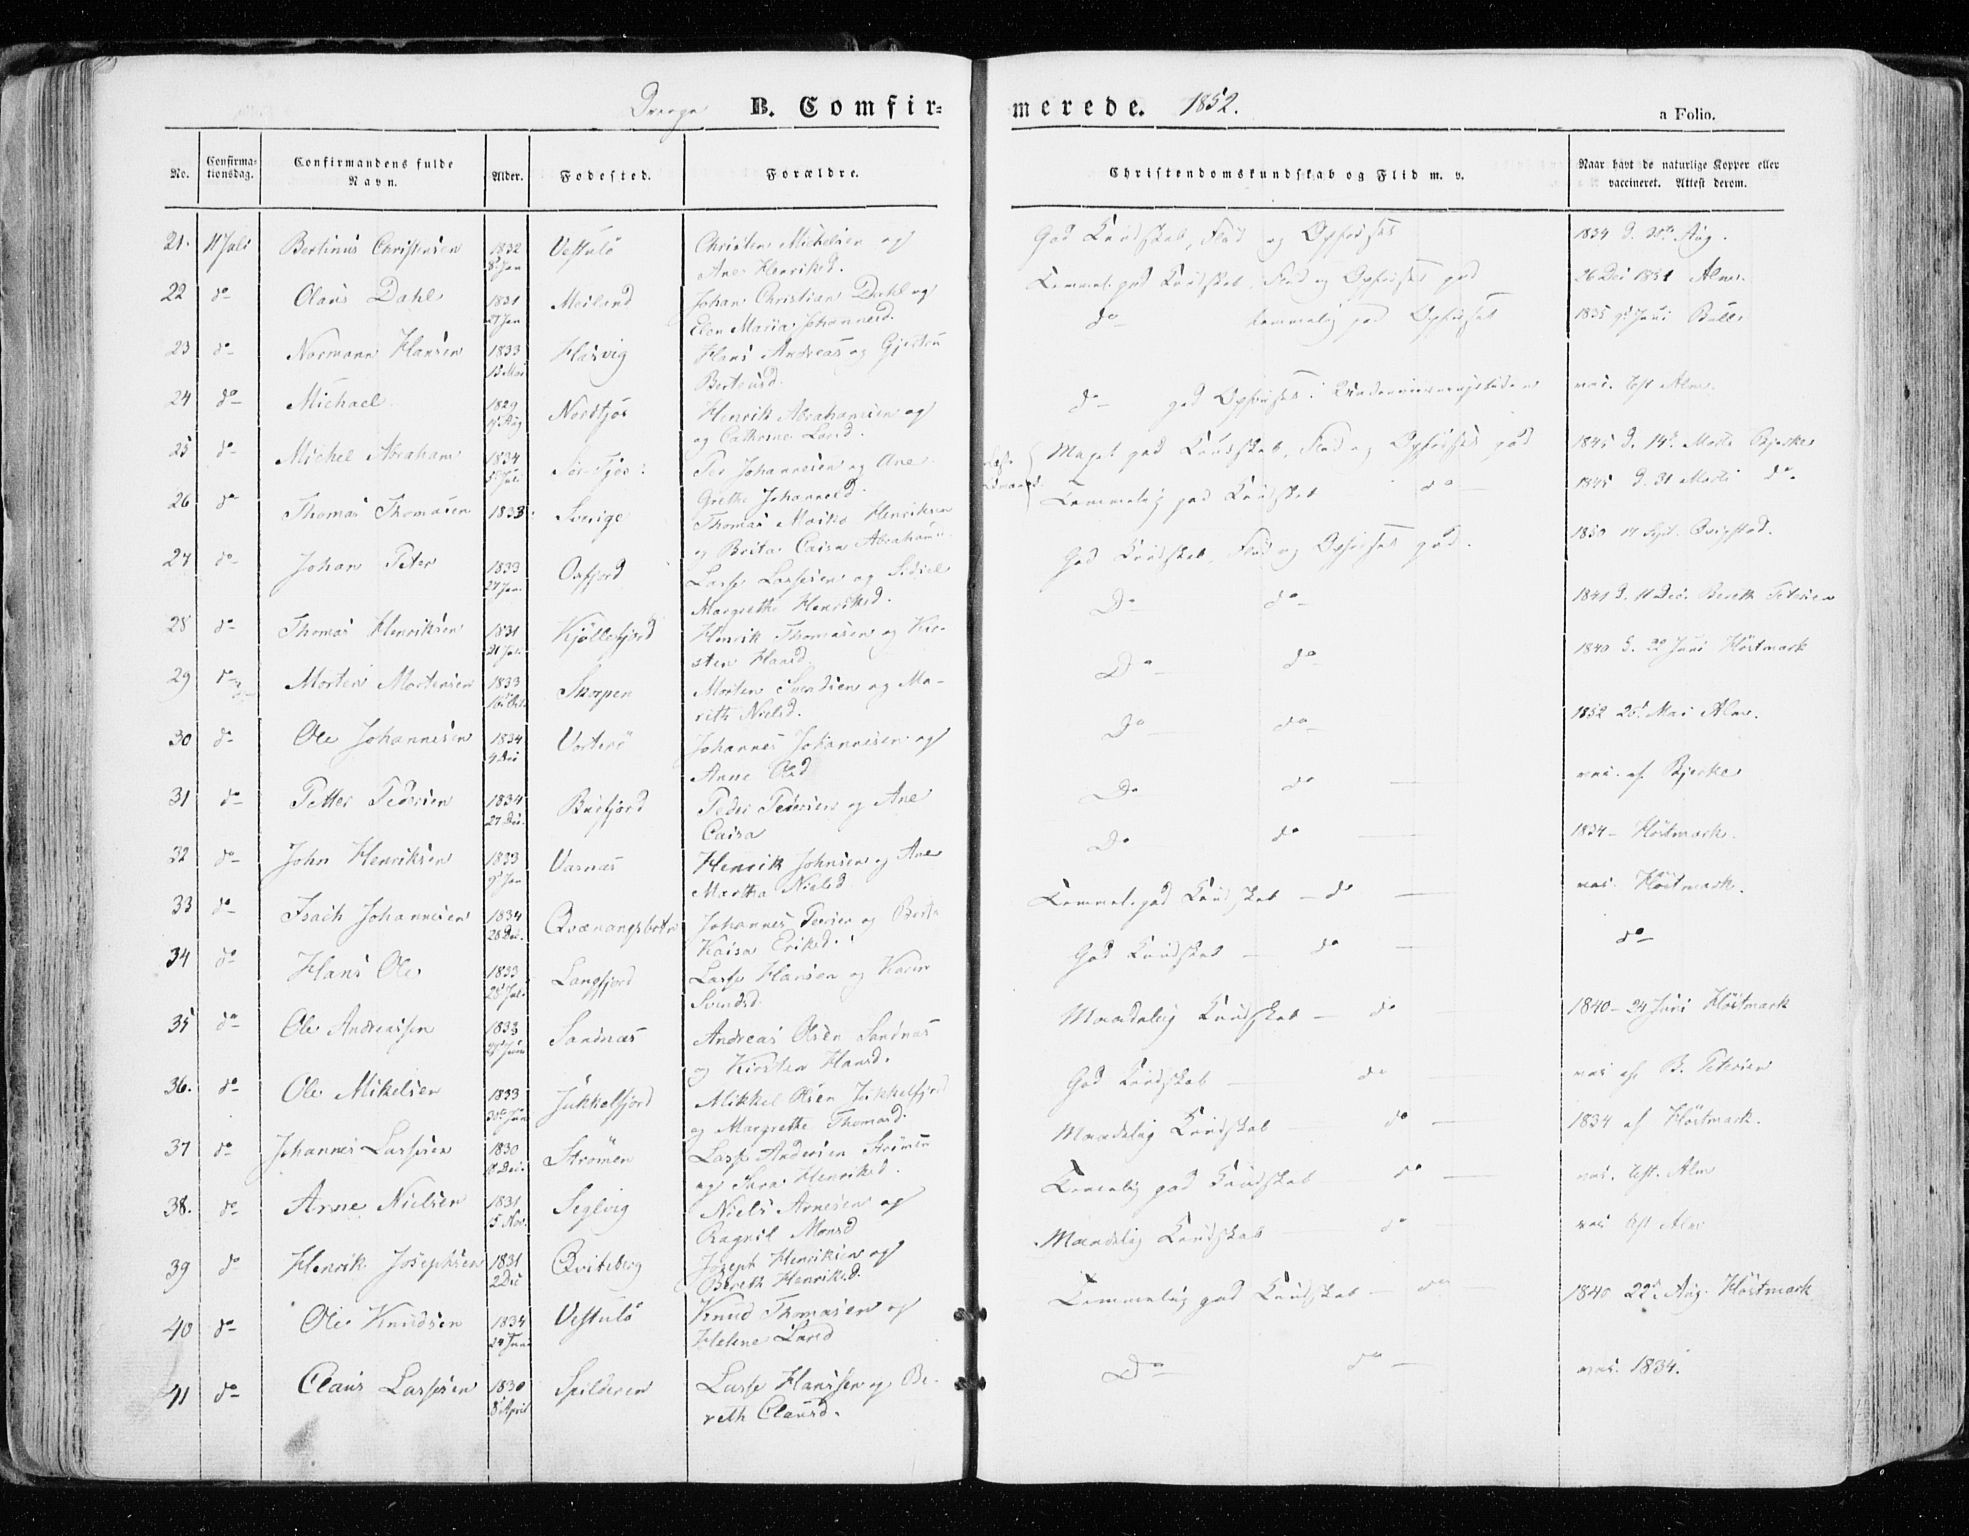 Drenge B. Comfir-
merede. 1852.
a Folio.
No. Confirma-tionsdag. Confirmandens fulde Navn. Alder. Fødested. Forældre.
Christendomskundskab og Flid m. v. Naar havt de naturlige Kopper eller vaccineret. Attest derom.
21. 11 Juli Bertinus Christensen 1832 8 Jan Vestulø Christen Michelsen og
Ane Henriksd.
God Kundskab, Flid og Opførsel 1834 d. Aug.
22 do Olaus Dahl 1831 27 Jan Meiland Johan Christian Dahl og
Elen Maria Johannesd.
Temmel. god Kundskab, Flid og Opførsel god 26 Dec 1851 Alm.
23 do Normann Hansen 1833 Hasvig Hans Andreas og Gjertru
Berteusd.
do temmelig god Opførsel 1835 Juni Bull
24 do Michael 1829 Aug Henrik Abrahamsen og
og Cathrine Larsd.
do god Opførsel i Underviisningstiden vac. Test Alm.
25 do Michel Abraham 1834 5 Juli Per Johannesen og Ane
Grethe Johannesd.
Meget god Kundskab, Flid og Opførsel god 1845 d. 14 Marts Bjerke
26 do Thomas Thomasen 1833. Sverige Thomas Henriksen
og Brita Caisa Abrahams
Temmelig god Kundskab do 1845 d. 31 Marts do.
27 do Johan Peter 1833 27 Jan Oxfjord Lasse Lassesen og Sidsel
Margrethe Henriksd.
God Kundskab, Flid og Opførsel god. 1850 17 Sept. Qvigstad.
28 do Thomas Henriksen 1831 Kjøllefjord Henrik Thomasen og Kir-
sten Hansd.
Do do 1841 d. 11 Dec. Bereth Petersen
29 do Morten Mortensen 1833 Skorpen Morten Svendsen og Ma-
rith Nielsd.
Do do 1840 d. 22 Juni Høstmark
30 do Ole Johannesen 1834 4 Dec Vorterø Johannes Johannesen og
Anne Olsd
Do do 1852 25 Mai Alm.
31 do Petter Pedersen 1834 27 Dec. Burfjord Peder Pedersen og Ane
Caisa
Do do vac. af Bjerke
32 do John Henriksen 1833 9 Jan Varnæs Henrik Johnsen og Ane
Martha Nielsd
Do do 1834 - Høstmark.
33 do Isach Johannesen 1834 28 Dec. Qvænangsbotn Johannes Persen og Berte
Kaisa Eriksd.
Temmel. god Kundskab - do vac. Høstmark.
34 do Hans Ole 1833 25 Juli Langfjord Lasse Hansen og Karen
Svendsd.
God Kundskab - do do
35 do Ole Andreassen 1833 Juni Sandnæs Andreas Olsen Sandnæs
og Kirsten Hansd.
Maadelig Kundskab - do 1840 - 24 Juni Høstmark
36. do Ole Mikelsen 1833 30 Jun Jøkkelfjord Mikkel Olsen Jøkkelfjord
og Margrethe Thomasd.
God Kundskab do vac af B. Petersen
37 do Johannes Lassesen 1830 Dec. Strømen Lasse Andersen Strømen
og Sara Henriksd.
Maadelig Kundskab do 1834 af Høstmark.
38. do Arne Nielsen 1831 5 Nov. Seglvig Niels Arnesen og
Ragnil Monsd
Temmelig god Kundskab do vac. Test. Alm
39 do Henrik Josephsen 1831 2 Dec Qviteberg Joseph Henriksen og
Bereth Henriksd.
Maadelig Kundskab do vac Test Alm
40 do Ole Knudsen 1834 24 Juni Vestulø Knud Thomasen og
Helene Larsd
Temmelig god Kundskab - do 1840 22d Aug. Høstmark
41 do Claus Lassesen 1830 8 April Spilderen Lasse Hanssen og Be-
reth Clausd.
Do do vac. 1834.